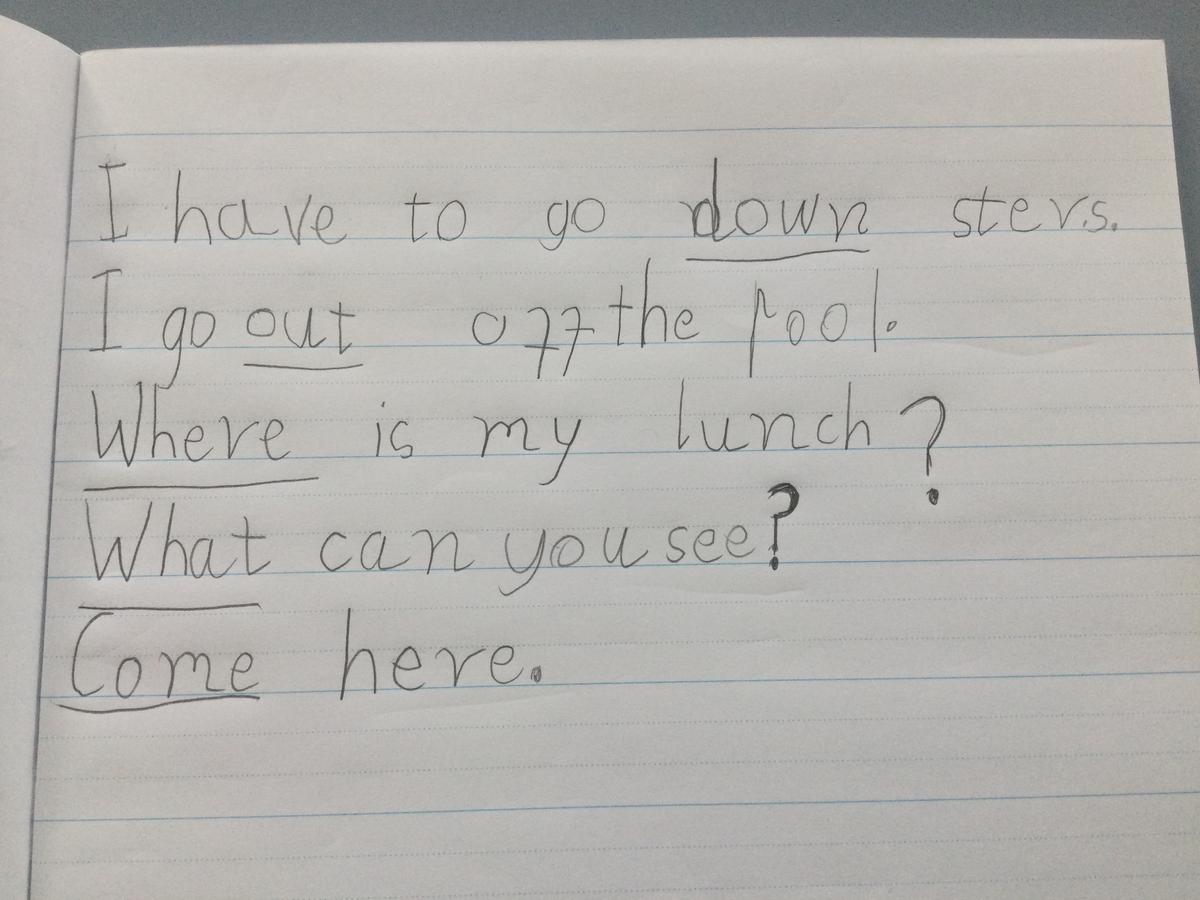 I have to go down stevs.
I go out off the pool.
Where is my lunch?
What can you see?
Come here.